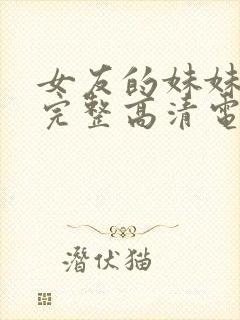 女友的妹妹
完整高清電
潛伏猫